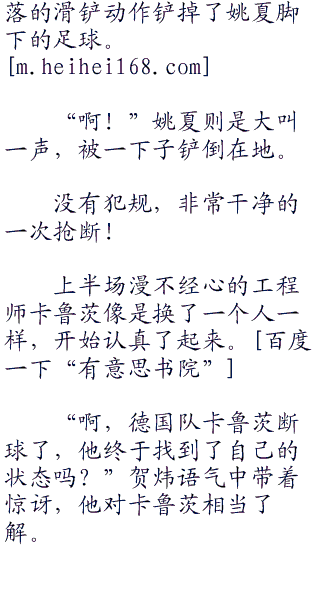 落的滑铲动作铲掉了姚夏脚
下的足球。
[m.heihei168.com]
“啊！”姚夏则是大叫
一声，被一下子铲倒在地。
没有犯规，非常干净的
一次抢断！
上半场漫不经心的工程
师卡鲁茨像是换了一个人一
样，开始认真了起来。[百度
一下“有意思书院”]
“啊，德国队卡鲁茨断
球了，他终于找到了自己的
状态吗？”贺炜语气中带着
惊讶，他对卡鲁茨相当了
解。